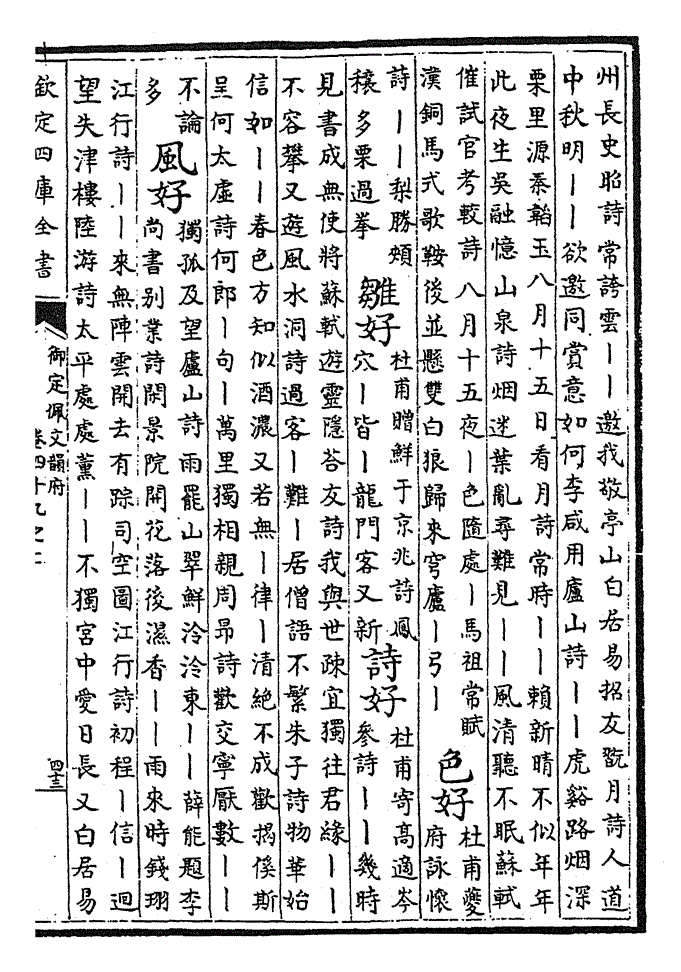 州長史昭詩常誇雲丨丨邀我敬亭山白居易招友翫月詩人道
中秋明丨丨欲邀同賞意如何李咸用廬山詩丨丨虎谿路烟深
栗里源秦韜玉八月十五日看月詩常時丨丨賴新晴不似年年
此夜生吳融憶山泉詩烟迷葉亂尋難見丨丨風清聽不眠蘇軾
催試官考較詩八月十五夜丨色隨處丨馬祖常賦
漢銅馬式歌鞍後並懸雙白狼歸來穹廬丨弓丨
色好
杜甫夔
府詠懷
詩丨丨梨勝頰
穰多栗過拳
雛好
杜甫贈鮮于京兆詩鳳
穴丨皆丨龍門客又新
詩好
杜甫寄高適岑
參詩丨丨幾時
見書成無使將蘇軾遊靈隱荅友詩我與世疎宜獨往君緣丨丨
不容攀又遊風水洞詩過客丨難丨居僧語不繁朱子詩物華始
信如丨丨春色方知似酒濃又若無丨律丨清絶不成歡揭傒斯
呈何太虛詩何郎丨句丨萬里獨相親周昂詩歡交寧厭數丨丨
不論
多
風好
獨孤及望廬山詩雨罷山翠鮮泠泠東丨丨薛能題李
尚書别業詩閑景院開花落後濕香丨丨雨來時錢珝
江行詩丨丨來無陣雲開去有踪司空圖江行詩初程丨信丨迴
望失津樓陸游詩太平處處薰丨丨不獨宮中愛日長又白居易
欽定四庫全書
御定佩文韻府
卷四十九之二
四十三